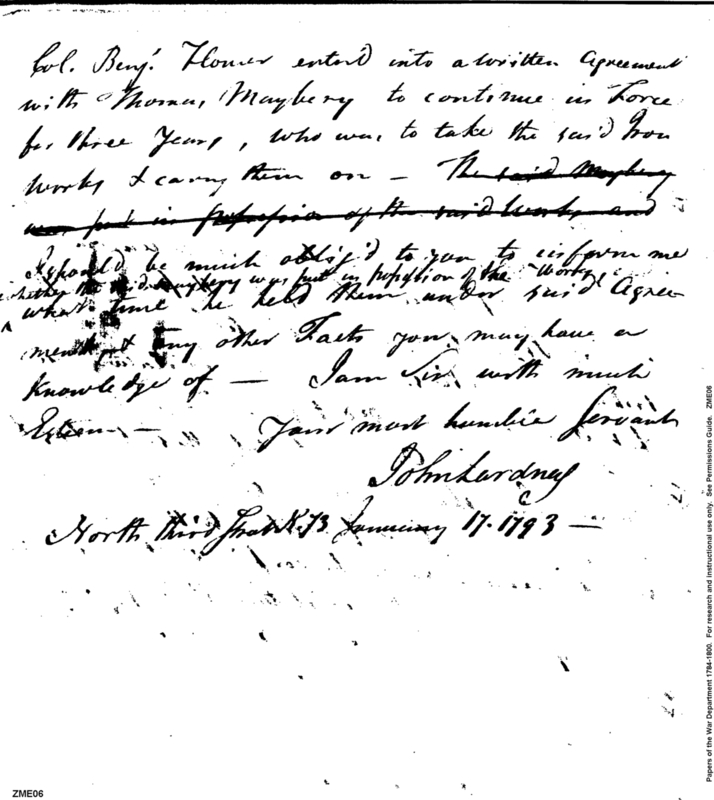 Col. Benj. Flower enter'd into a written Agreement
with Thomas Maybery to continue in Force
for three Years, who was to take the said Iron
Works & carry them on — The said Maybery
was put in possession of the said Works and
I should be much oblig'd to you to inform me
whether the said Maybery was put in possession of the Works &
what time he held them under said Agree-
ment & any other Facts you may have a
Knowledge of — I am Sir with much
Esteem — Your most humble Servant
John Lardner
North third Street No. 73 January 17. 1793 —
Papers of the War Department 1784-1800. For research and instructional use only. See Permissions Guide. ZME06
ZME06